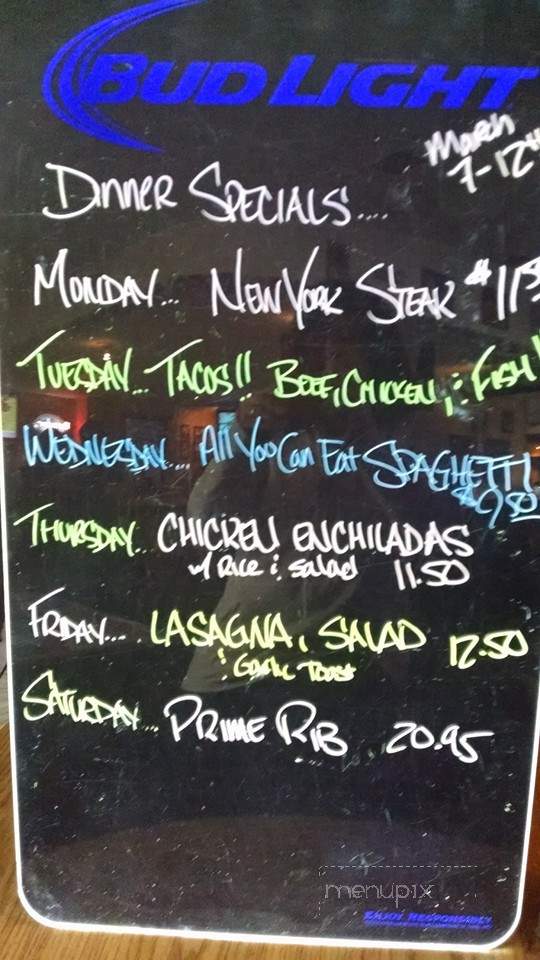 BUD LIGHT
March
7-12th
Dinner Specials....
Monday... New York Steak $11.50
Tuesday... Tacos!! Beef, Chicken, & Fish!
Wednesday.... All You Can Eat Spaghetti
$9.80
Thursday... Chicken Enchiladas
w/ Rice & Salad 11.50
Friday.... Lasagna, Salad 12.50
& Garlic Toast
Saturday... Prime Rib 20.95
menupix
Enjoy Responsibly